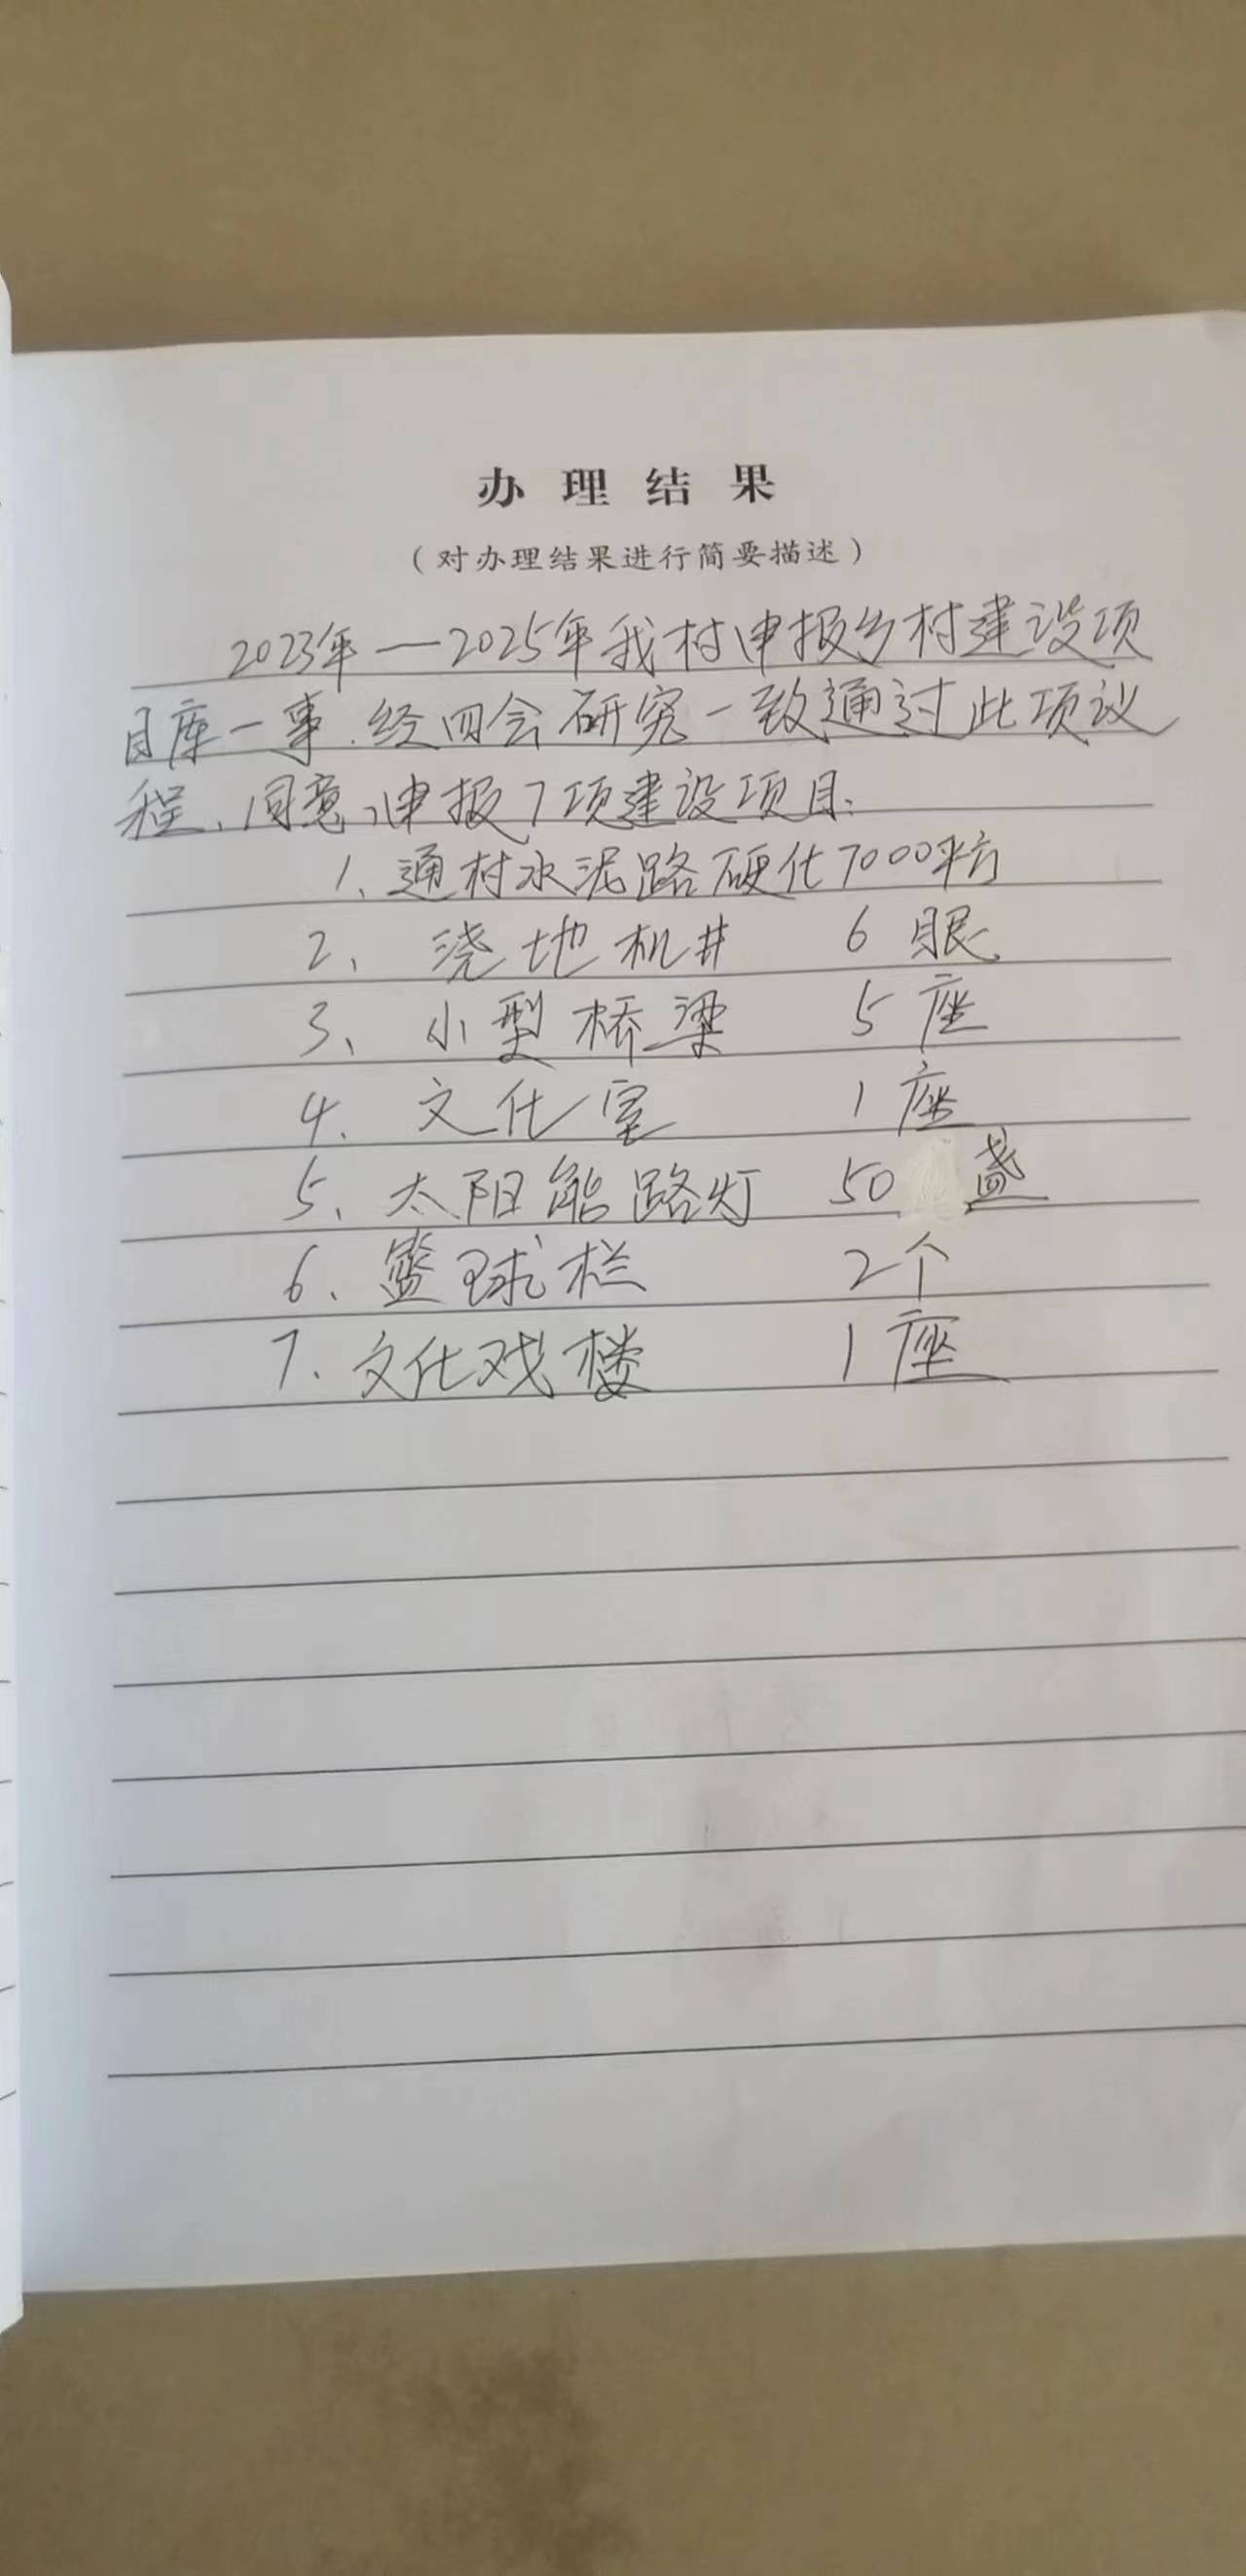 办理结果
（对办理结果进行简要描述）
2023年—2025年我村申报乡村建设项
目库一事.经四会研究一致通过此项议
程、同意、申报7项建设项目:
1、通村水泥路硬化7000平方
2、浇地机井 6眼
3、小型桥梁 5座
4、文化室 1座
5、太阳能路灯 50盏
6、篮球栏 2个
7、文化戏楼 1座